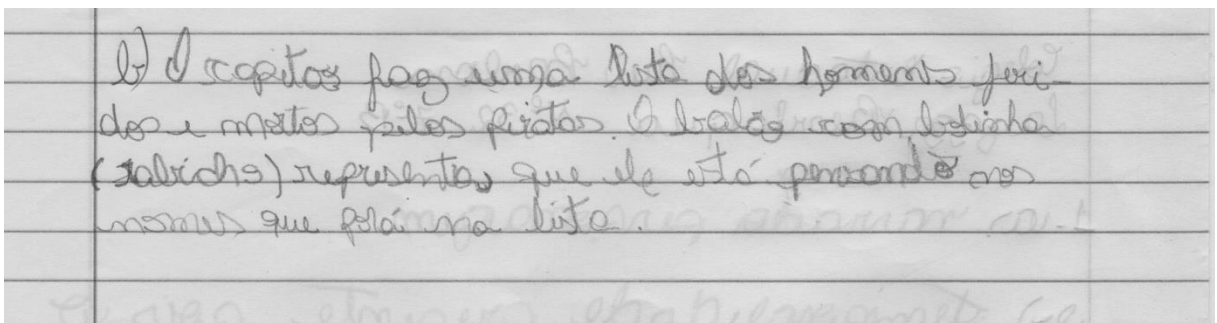 b) O capitão faz uma lista dos homems feri-
dos e mortos pelos piratas. O balão com bolinha
(rabicho) representa que ele está pensando nos
nomes que porá na lista.